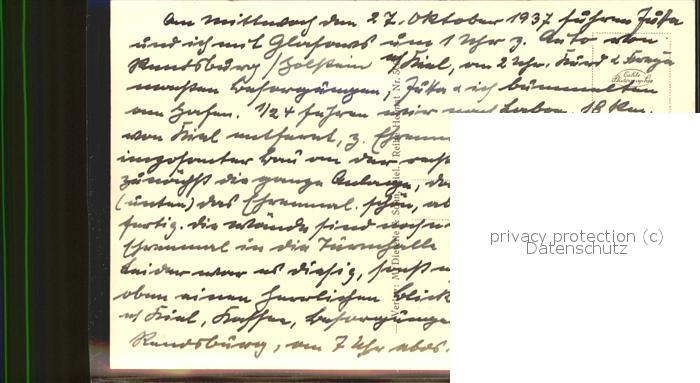 Am Mittwoch den 27. Oktober 1937 fuhren Jutta
und ich mit Glasows um 1 Uhr z. Auto von
Rendsburg / Holstein n/ Kiel, an 2 Uhr. Kurd &
machten Besorgungen, Jutta & ich bummelten
am Hafen. 1/2 4 fuhren wir nach Laboe, 18 Km.
von Kiel entfernt, z.
imposanter Bau an der
zunächst die ganze Anlage,
(unten) das Ehrenmal. schön,
fertig. die Wände sind noch
Ehrenmal in die Turmhalle
Leider war es diesig, sonst
oben einen herrlichen Blick
n/ Kiel, Kaffee,
Rendsburg, an 7 Uhr abds.
Echte Photographie
privacy protection (c)
Datenschutz